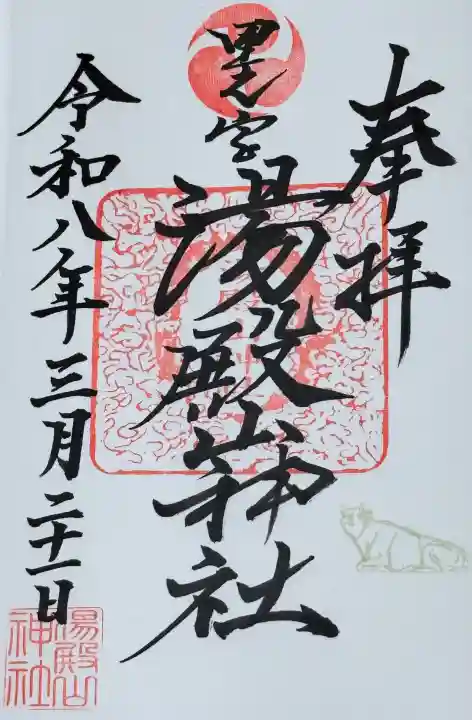 奉拝
里之宮
湯殿山神社
令和八年三月二十一日
湯殿山神社